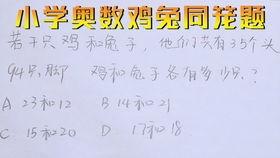 小学奥数鸡兔同笼题
若干只鸡和兔子，他们共有35个头
94只脚 鸡和兔子各有多少只？
A 23和12 B 14和21
C 15和20 D 17和18